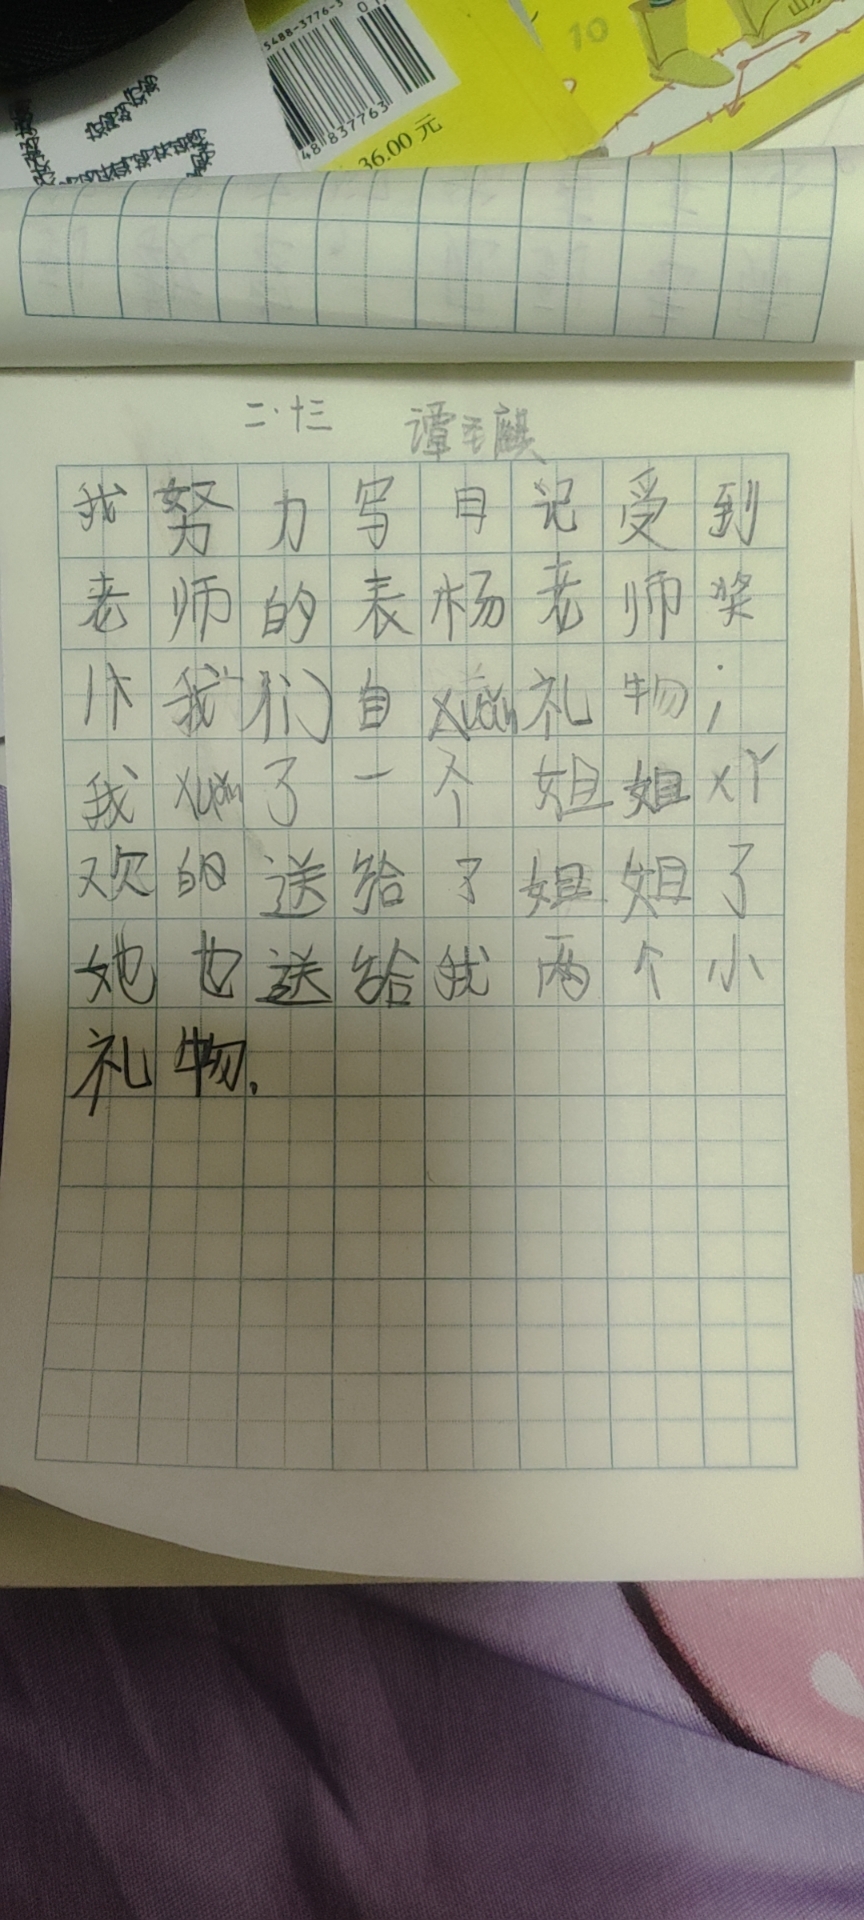 5488-3776-3
48837763
36.00 元
10
二·十三
我努力写日记受到
老师的表杨老师奖
我们自xuǎn礼物;
我xuǎn了一个姐姐
欢的送给了姐姐了
她也送给我两个小
礼物.